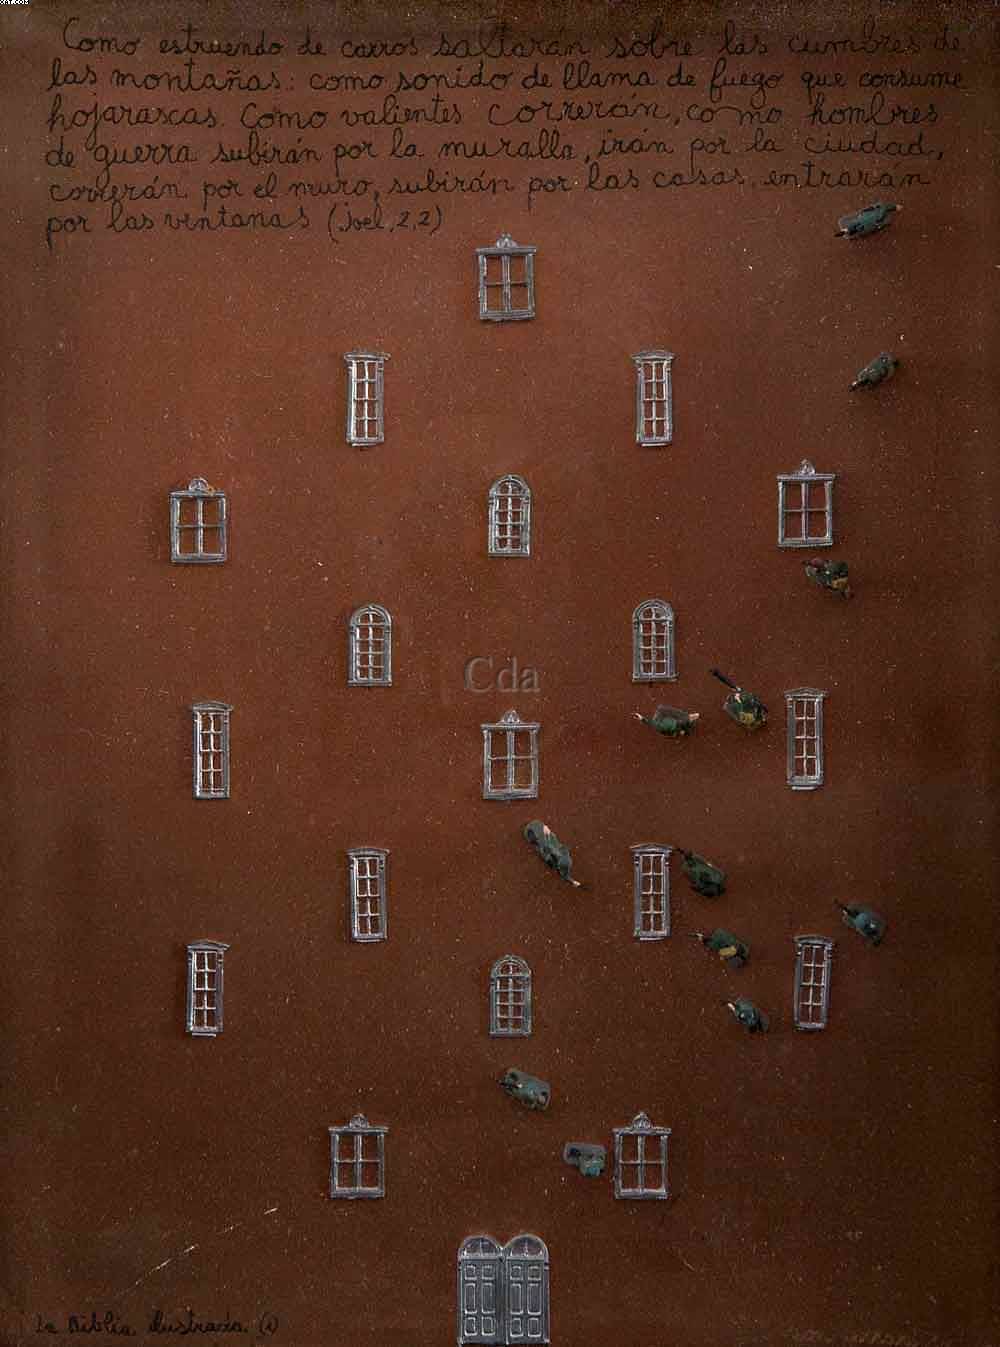 Como estruendo de carros saltarán sobre las cumbres de
las montañas: como sonido de llama de fuego que consume
hojarascas. Como valientes correrán, como hombres
de guerra subirán por la muralla, irán por la ciudad,
correrán por el muro, subirán por las casas, entraran
por las ventanas (joel, 2,2)
Cda
La Biblia ilustrada